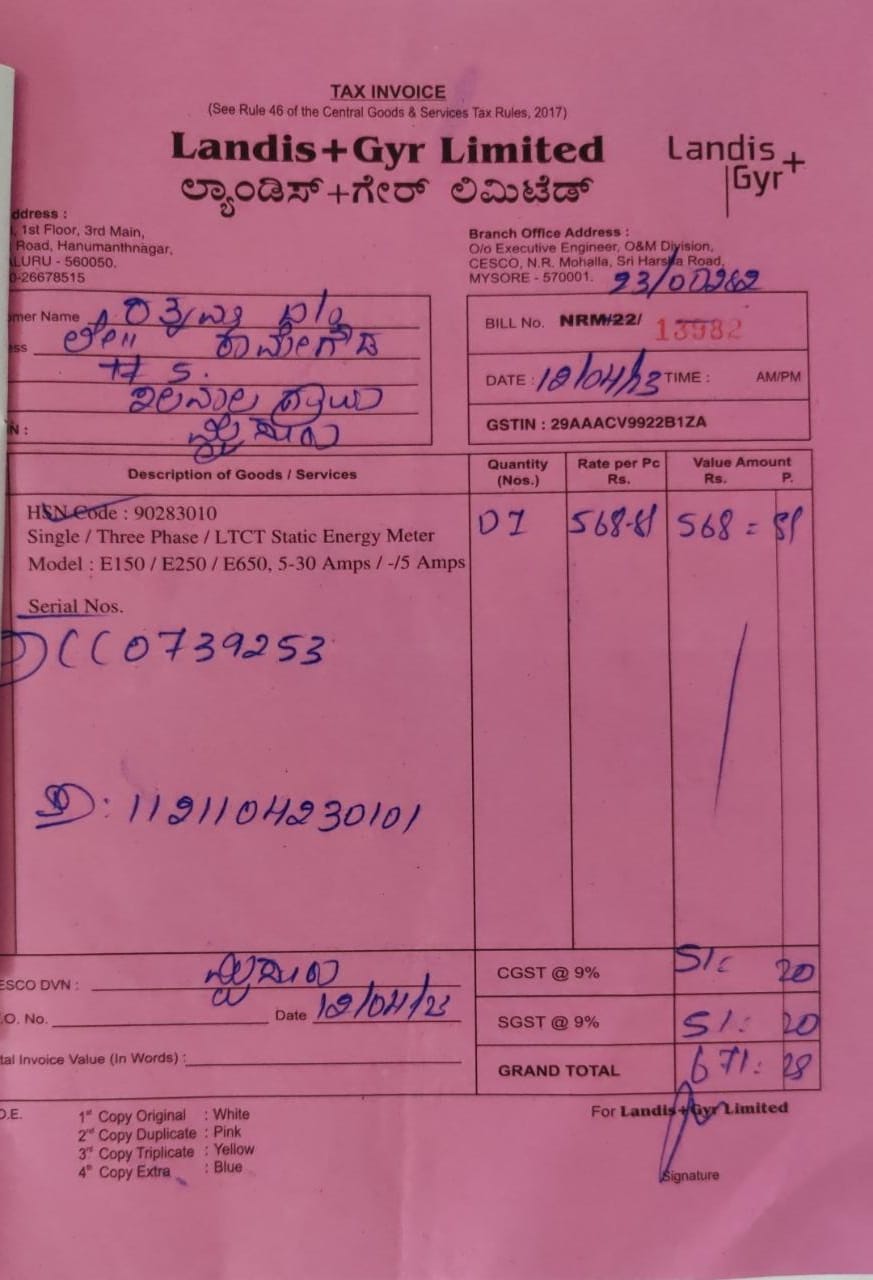 TAX INVOICE
(See Rule 46 of the Central Goods & Services Tax Rules, 2017)
Landis+Gyr Limited
ಲ್ಯಾಂಡಿಸ್+ಗೇರ್ ಲಿಮಿಟೆಡ್
Landis+
Gyr+
ddress :
, 1st Floor, 3rd Main,
Road, Hanumanthnagar,
LURU - 560050.
0-26678515
Branch Office Address :
O/o Executive Engineer, O&M Division,
CESCO, N.R. Mohalla, Sri Harsha Road,
MYSORE - 570001.
mer Name
ess
# S.
ಮೈಸೂರು
N :
BILL No. NRM/22/ 13982
DATE : 12/04/23 TIME : AM/PM
GSTIN : 29AAACV9922B1ZA
Description of Goods / Services Quantity (Nos.) Rate per Pc Rs. Value Amount Rs. P.
HSN Code : 90283010
Single / Three Phase / LTCT Static Energy Meter
Model : E150 / E250 / E650, 5-30 Amps / -/5 Amps
01 568-81 568 = 81
Serial Nos.
CC0739253
ID: 1121104230101
ESCO DVN : ಮೈಸೂರು
.O. No. Date 12/04/23
tal Invoice Value (In Words) :
CGST @ 9% 51: 20
SGST @ 9% 51: 20
GRAND TOTAL 671: 28
O.E.
1st Copy Original : White
2nd Copy Duplicate : Pink
3rd Copy Triplicate : Yellow
4th Copy Extra : Blue
For Landis+Gyr Limited
Signature